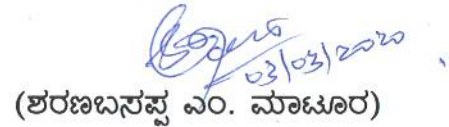 03/03/2020
(ಶರಣಬಸಪ್ಪ ಎಂ. ಮಾಟೂರ)